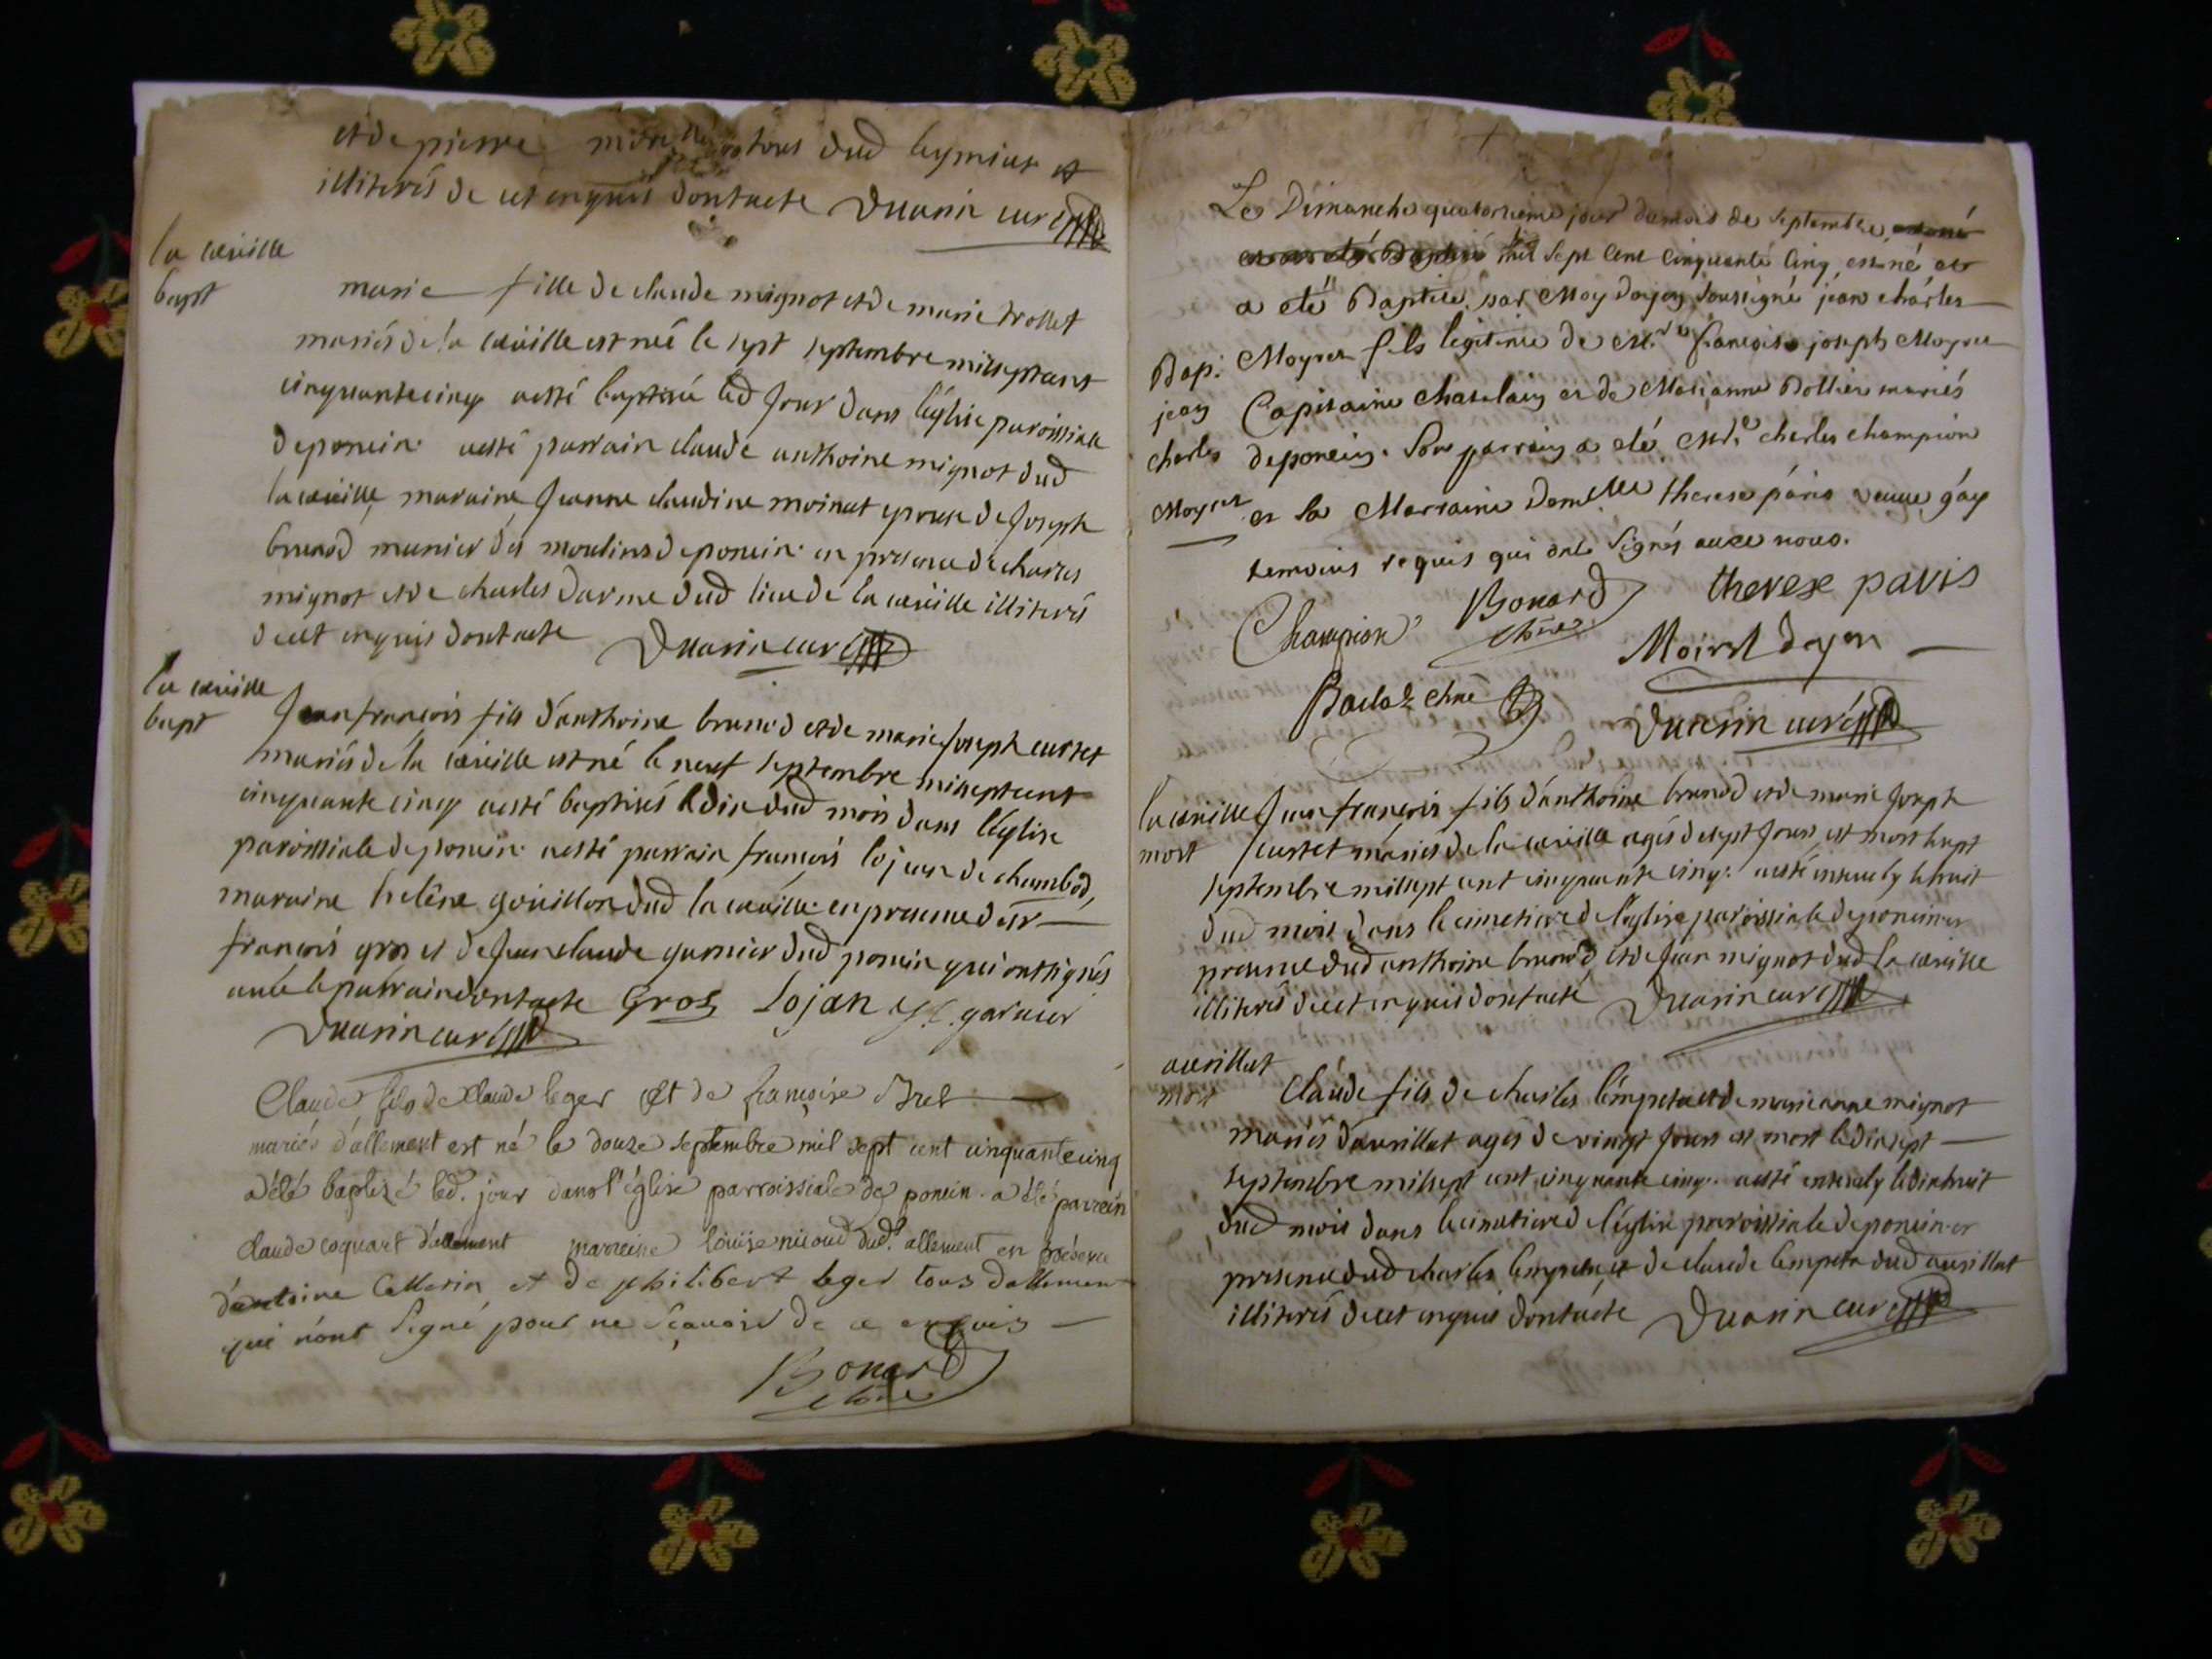 et de pierre tous dud leymiat et
illiterés de cet enquis dont acte Duarin curé
la cueille
bapt
marie fille de claude mignot et de marie trollet
mariés de la cueille est née le sept septembre mil sept cent
cinquante cinq a esté baptisée led jour dans l'église paroissiale
de poncin a esté parrain claude anthoine mignot dud
la cueille maraine Jeanne claudine moinat epouse de Joseph
brunod munier des moulins de poncin en presence de charles
mignot et de charles darme dud lieu de la cueille illiterés
de cet enquis dont acte Duarin curé
la cueille
bapt
Jean françois fils d'anthoine brunod et de marie Joseph curtet
mariés de la cueille est né le neuf septembre mil sept cent
cinquante cinq a esté baptisés le dix dud mois dans l'église
paroissiale de poncin a esté parrain françois lojean de chambod,
maraine helêne goüillon dud la cueille en presence de sr
françois gros et de Jean claude garnier dud poncin qui ont signés
avec le parrain dont acte Gros Lojan J C garnier
Duarin curé
Claude fils de Claude leger Et de françoise
mariés d'allement est né le douze septembre mil sept cent cinquante cinq
a été baptizé led. jour dans l'église parroissiale de poncin a été parrein
claude coquart d'allement marreine loüise nicoud dud. allement en présence
d'antoine Callerin et de philibert leger tous dallemen
qui n'ont signé pour ne sçavoir de ce enquis
Bonard
Le Dimanche quatorzieme jour du mois de septembre
mil sept cent cinquante cinq, est né et
a eté Baptisé par Moy doyen soussigné jean charles
Bap: Moyret fils legitime de françois joseph Moyret
jean Capitaine chatelain et de Marianne Bollier mariés
charles de poncin. Son parrain a eté charles champion
Moyret et la Marraine Demlle therese páris veuve gay
temoins requis qui ont Signés avec nous.
Champion Bonard therese paris
Moiret doyen
Duarin curé
la cueille Jean françois fils d'anthoine brunod et de marie Joseph
mort curtet mariés de la cueille agés de sept Jours est mort le sept
septembre mil sept cent cinquante cinq. a esté ensevely le huit
dud mois dans le cimetiere de l'église paroissiale de poncin en
presence dud anthoine brunod et de Jean mignot dud la cueille
illiterés de cet enquis dont acte Duarin curé
avrillat
mort
Claude fils de charles l'empeta et de marie anne mignot
mariés d'avrillat agés de vingt Jours est mort le dixsept
septembre mil sept cent cinquante cinq. a esté ensevely le dixhuit
dud mois dans le cimetiere de l'église paroissiale de poncin en
presence dud charles l'empeta et de claude l'empeta dud avrillat
illiterés de cet enquis dont acte Duarin curé